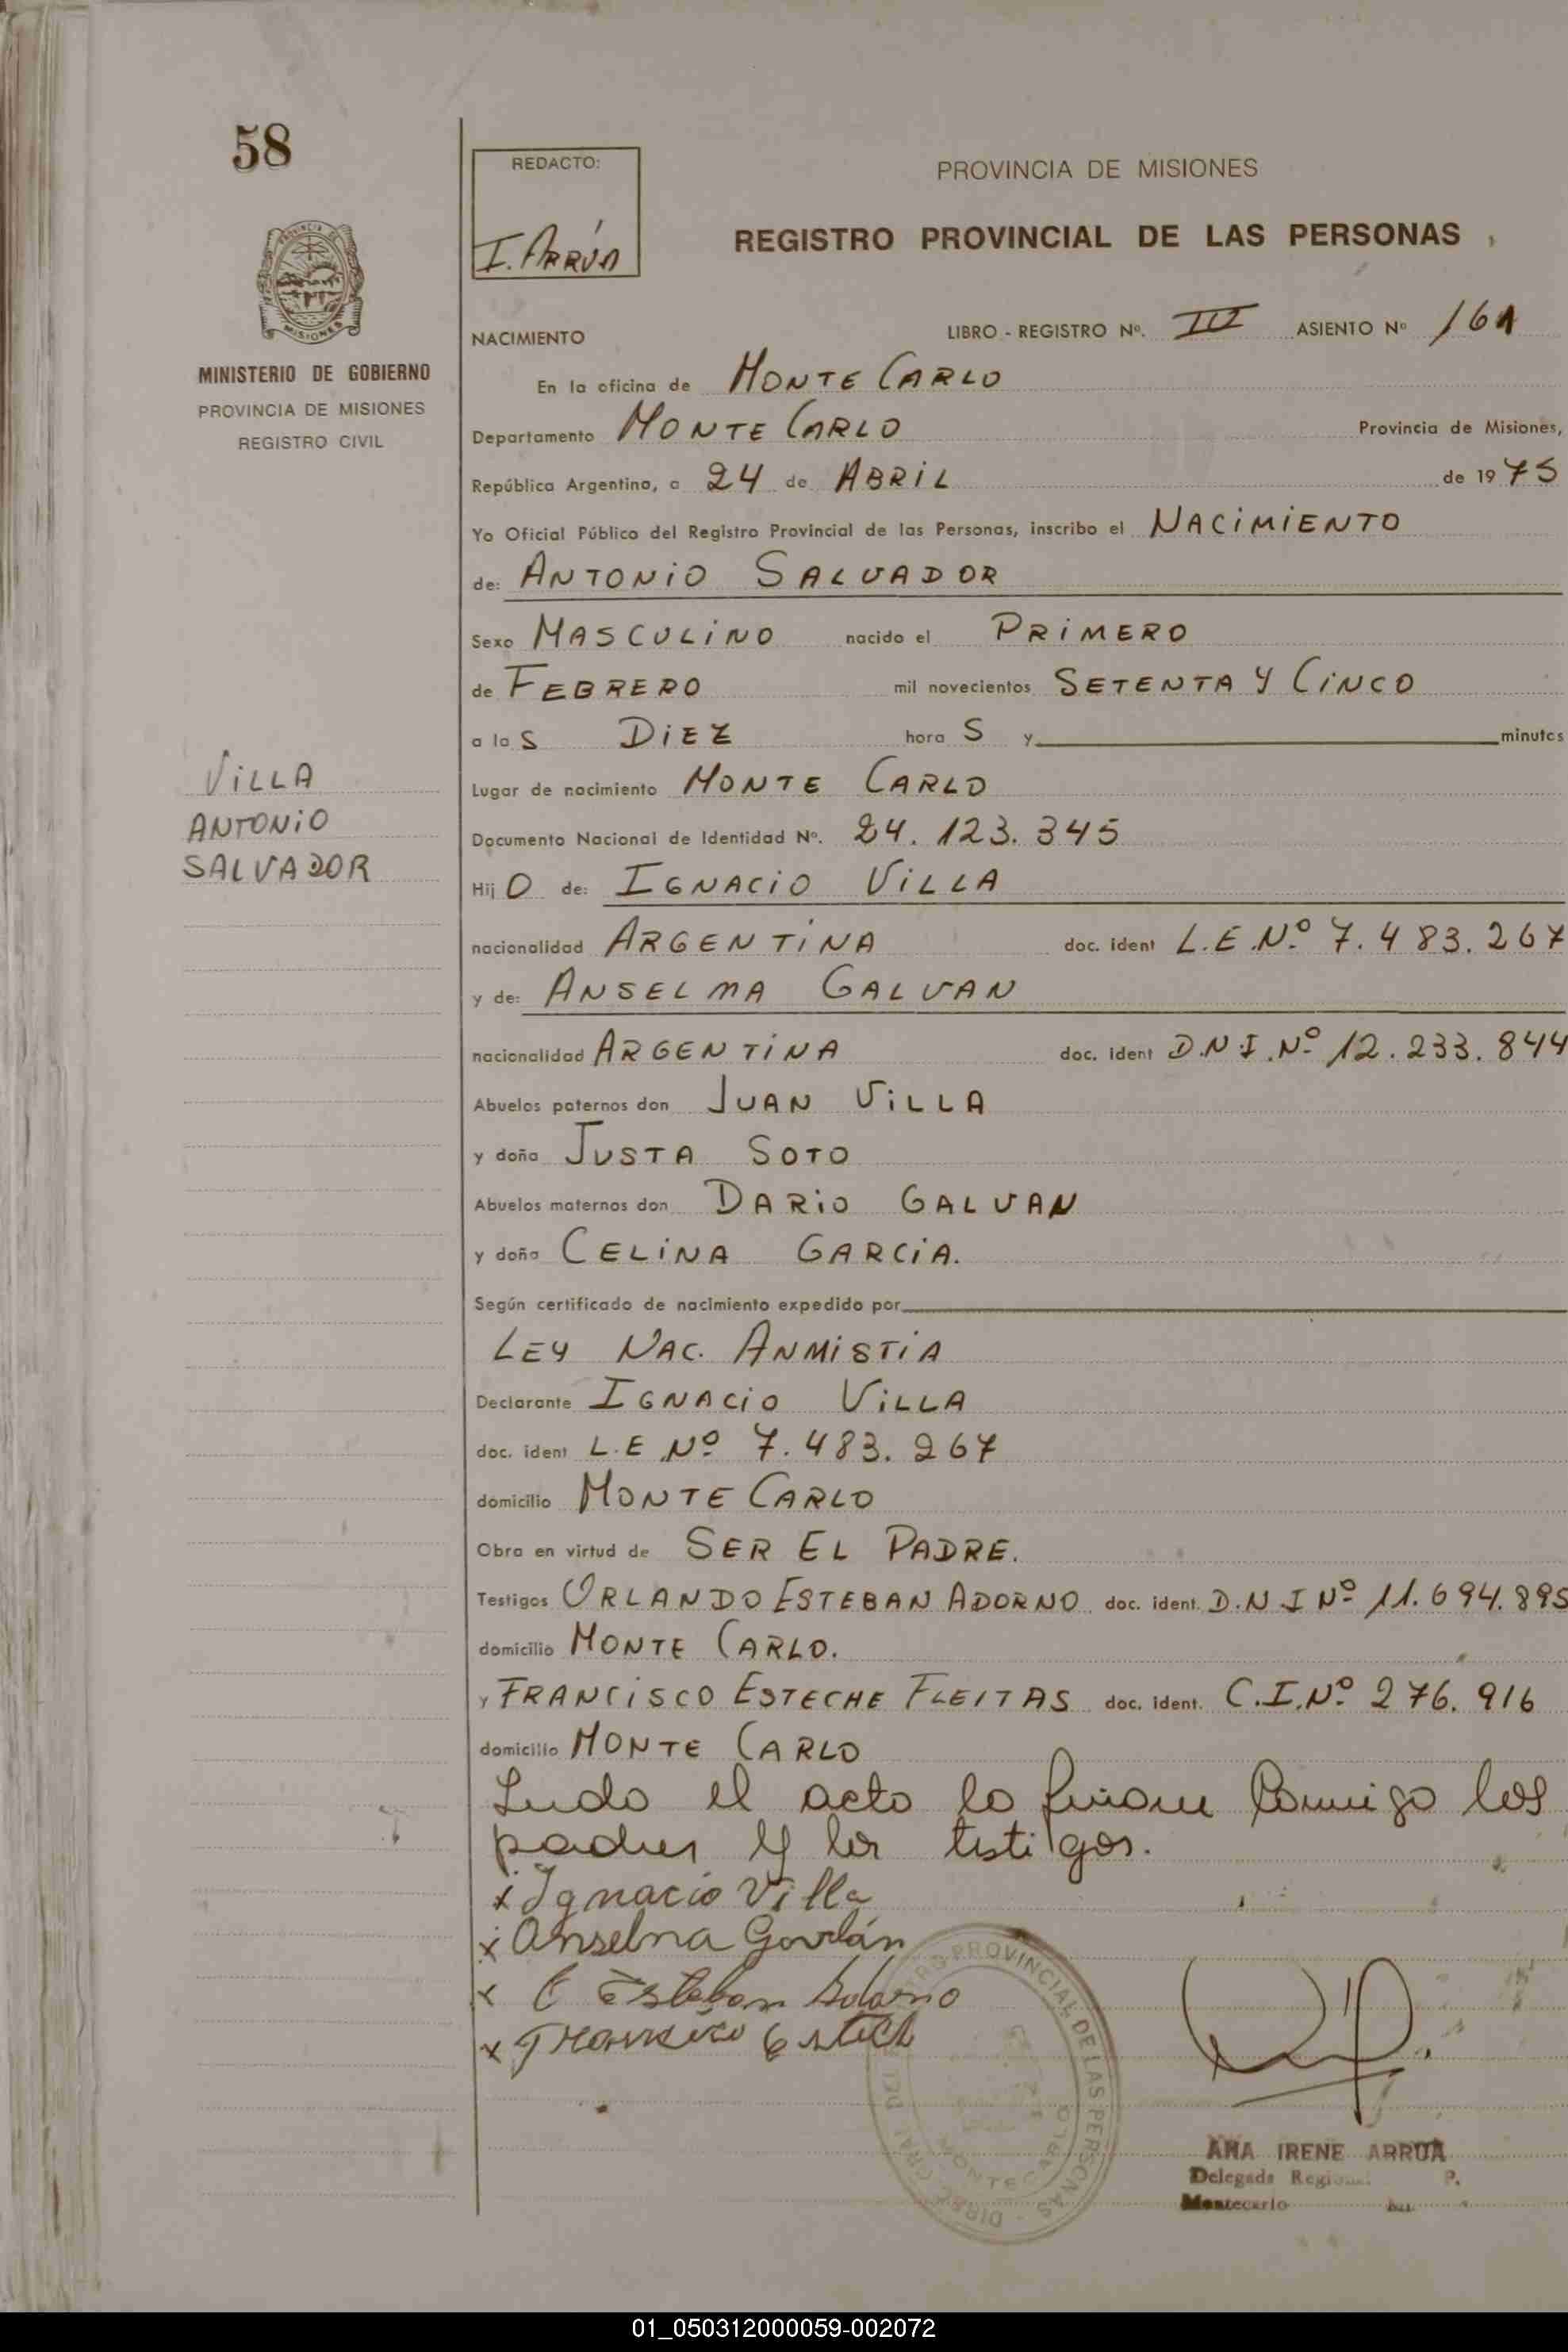 58
REDACTO:
I. ARRÚA
PROVINCIA DE MISIONES
REGISTRO PROVINCIAL DE LAS PERSONAS
PROVINCIA DE MISIONES
MINISTERIO DE GOBIERNO
PROVINCIA DE MISIONES
REGISTRO CIVIL
NACIMIENTO LIBRO - REGISTRO Nº. III ASIENTO Nº 161
En la oficina de MONTE CARLO
Departamento MONTE CARLO Provincia de Misiones,
República Argentina, a 24 de ABRIL de 1975
Yo Oficial Público del Registro Provincial de las Personas, inscribo el NACIMIENTO
de: ANTONIO SALVADOR
Sexo MASCULINO nacido el PRIMERO
de FEBRERO mil novecientos SETENTA Y CINCO
a la S DIEZ hora S y minutos
VILLA
ANTONIO
SALVADOR
Lugar de nacimiento MONTE CARLO
Documento Nacional de Identidad Nº. 24.123.345
Hij O de: IGNACIO VILLA
nacionalidad ARGENTINA doc. ident L.E.Nº 7.483.267
y de: ANSELMA GALVAN
nacionalidad ARGENTINA doc. ident D.N.I.Nº 12.233.844
Abuelos paternos don JUAN VILLA
y doña JUSTA SOTO
Abuelos maternos don DARIO GALVAN
y doña CELINA GARCIA.
Según certificado de nacimiento expedido por
LEY NAC. ANMISTIA
Declarante IGNACIO VILLA
doc. ident L.E Nº 7.483.267
domicilio MONTE CARLO
Obra en virtud de SER EL PADRE.
Testigos ORLANDO ESTEBAN ADORNO doc. ident. D.N.I Nº 11.694.895
domicilio MONTE CARLO.
y FRANCISCO ESTECHE FLEITAS doc. ident. C.I.Nº 276.916
domicilio MONTE CARLO
Leido el acto lo firman Conmigo los
padres y los testigos.
x Ignacio Villa
x Anselma Galván
x O Esteban Adorno
x Francisco Estech
DIREC. GRAL DEL REGISTRO PROVINCIAL DE LAS PERSONAS
MONTECARLO
ANA IRENE ARRUA
Delegada Regional P.
Montecarlo
01_050312000059-002072